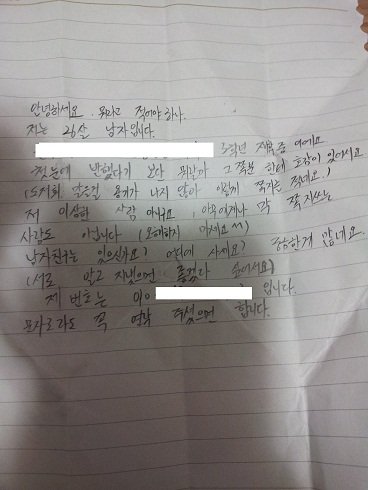 안녕하세요. 뭐라고 적어야 하나.
저는 26살 남자입니다.
3학년 재학중 이에요
첫눈에 반했다기 보단 뭐랄까 그 쪽분 한테 호감이 있어서요.
(도저히 말로걸 용기가 나지 않아 이렇게 쪽지를 적네요.)
저 이상한 사람 아니구요, 아무에게나 막 쪽지쓰는
사람도 아닙니다 (오해하지 마세요^^)
남자친구는 있으신가요? 어디에 사세요? 궁금한게 많네요.
(서로 알고 지냈으면 좋겠다 싶어서요)
제 번호는 010 입니다.
문자로라도 꼭 연락 주셨으면 합니다.